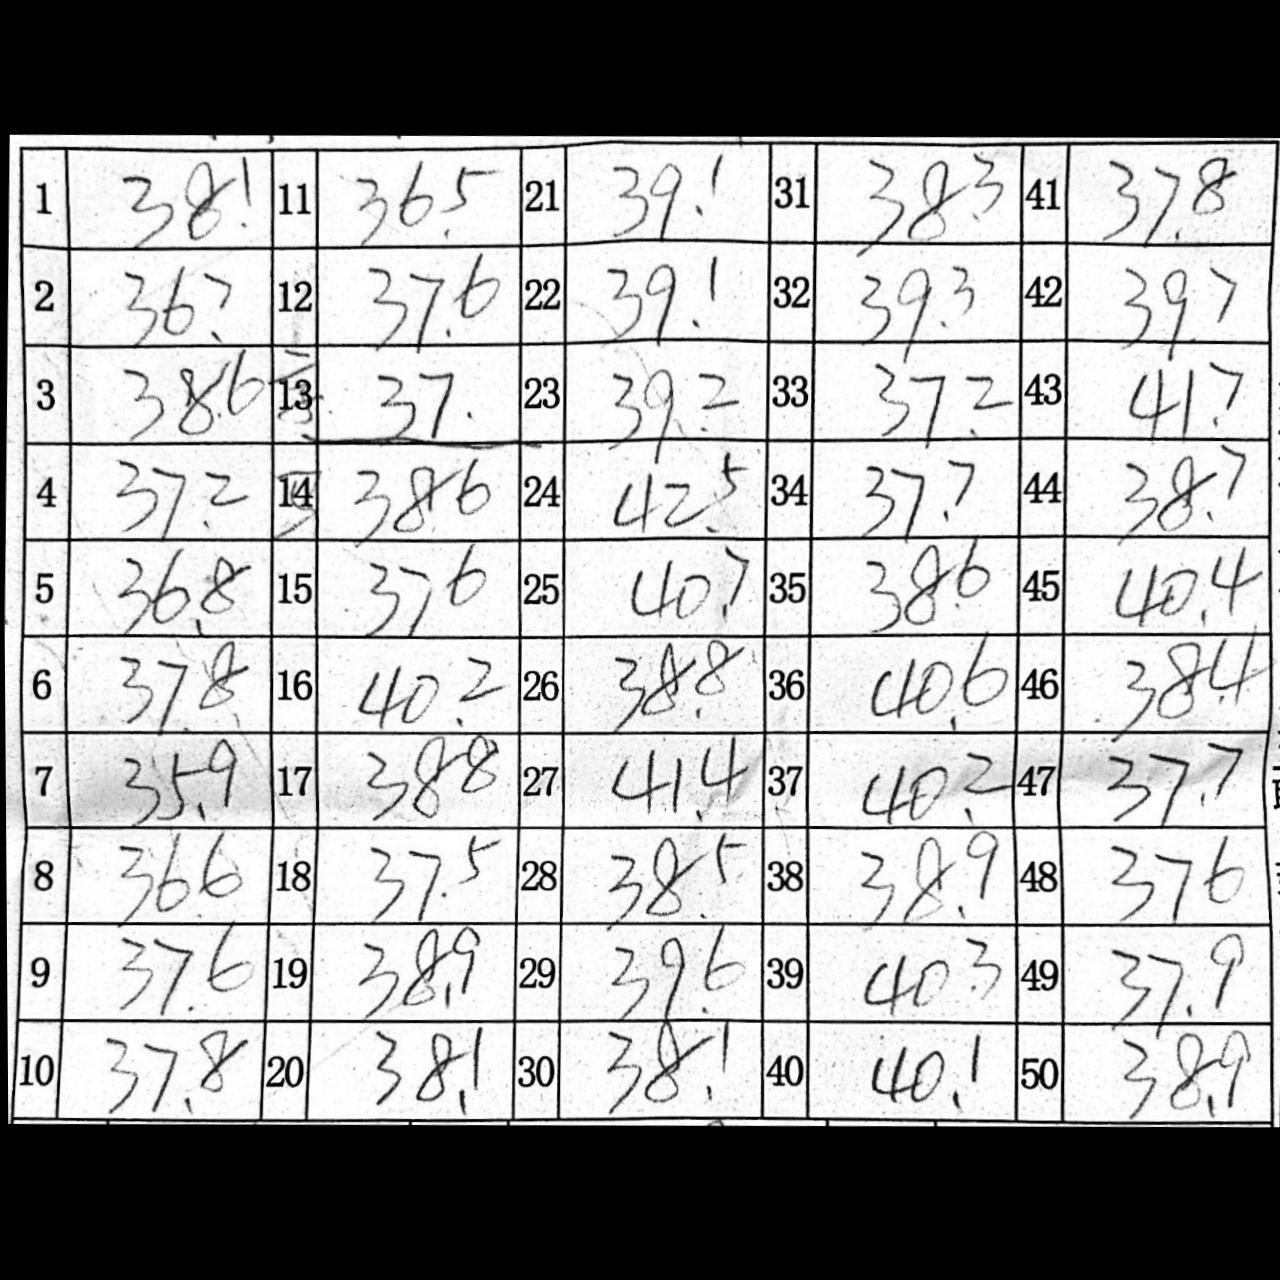 1 38.1 11 36.5 21 39.1 31 38.3 41 37.8
2 36.7 12 37.6 22 39.1 32 39.3 42 39.7
3 38.6 13 37. 23 39.2 33 37.2 43 41.7
4 37.2 14 38.6 24 42.5 34 37.7 44 38.7
5 36.8 15 37.6 25 40.7 35 38.6 45 40.4
6 37.8 16 40.2 26 38.8 36 40.6 46 38.4
7 35.9 17 38.8 27 41.4 37 40.2 47 37.7
8 36.6 18 37.5 28 38.5 38 38.9 48 37.6
9 37.6 19 38.9 29 39.6 39 40.3 49 37.9
10 37.8 20 38.1 30 38.1 40 40.1 50 38.9